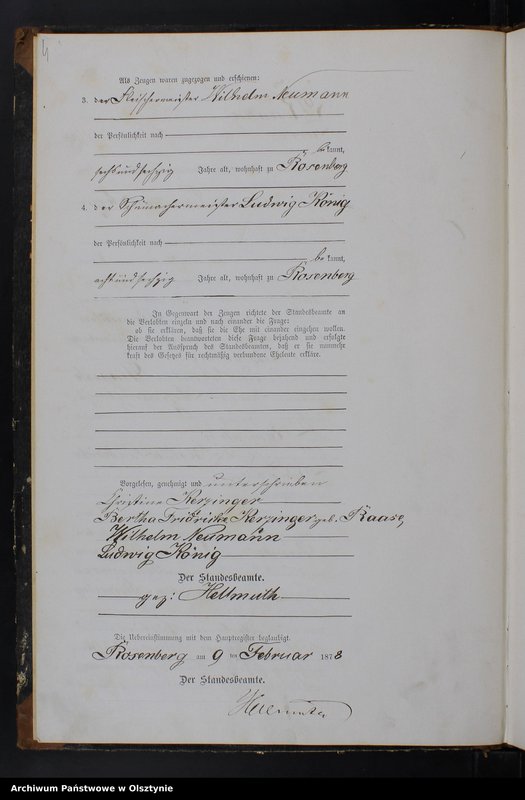 Als Zeugen waren zugezogen und erschienen:
3. der Fleischermeister Wilhelm Neumann
der Persönlichkeit nach
bekannt,
sechsundsechzig Jahre alt, wohnhaft zu Rosenberg
4. der Schumachermeister Ludwig König
der Persönlichkeit nach
bekannt,
achtundsechzig Jahre alt, wohnhaft zu Rosenberg
In Gegenwart der Zeugen richtete der Standesbeamte an
die Verlobten einzeln und nach einander die Frage:
ob sie erklären, daß sie die Ehe mit einander eingehen wollen.
Die Verlobten beantworteten diese Frage bejahend und erfolgte
hierauf der Ausspruch des Standesbeamten, daß er sie nunmehr
kraft des Gesetzes für rechtmäßig verbundene Eheleute erkläre.
Vorgelesen, genehmigt und unterschrieben
Christine Kerzinger
Bertha Friedricke Kerzinger geb. Raase,
Wilhelm Neumann
Ludwig König
Der Standesbeamte.
gez: Hellmuth
Die Uebereinstimmung mit dem Hauptregister beglaubigt.
Rosenberg am 9 ten Februar 1878
Der Standesbeamte.
Archiwum Państwowe w Olsztynie